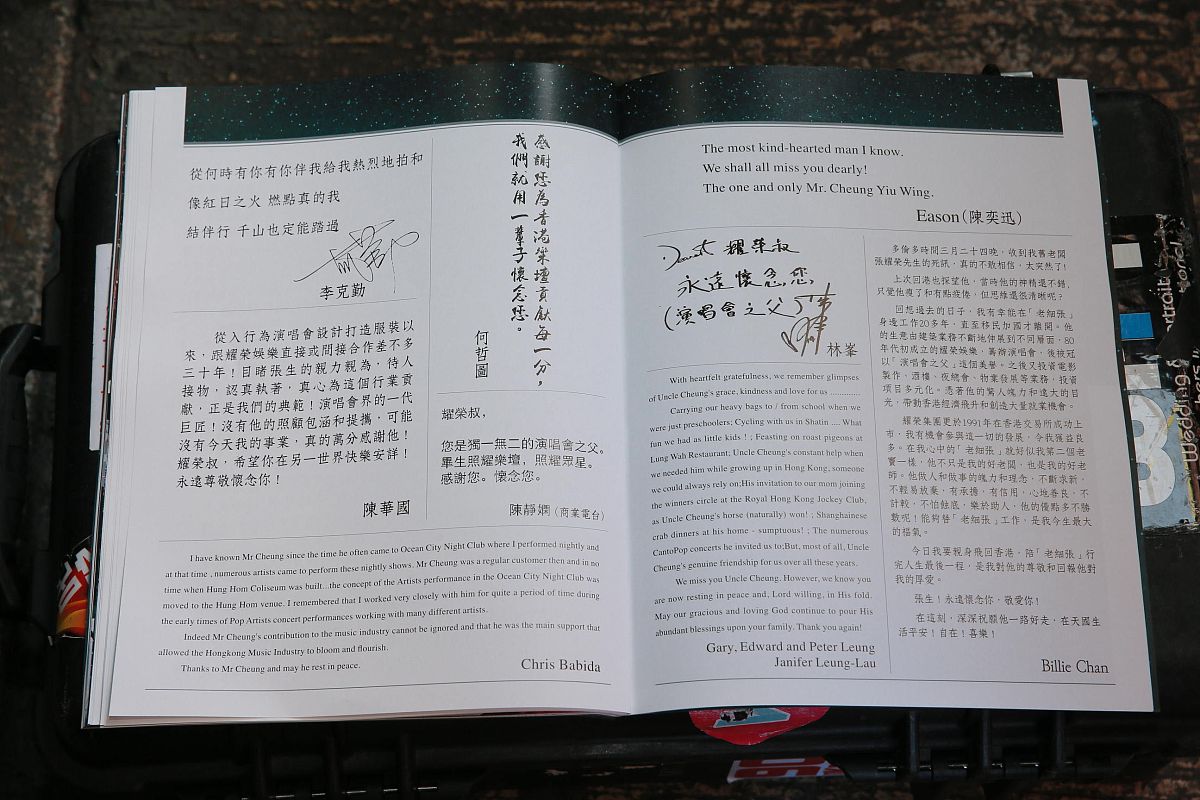 從何時有你有你伴我給我熱烈地拍和
像紅日之火 燃點真的我
結伴行 千山也定能踏過
李克勤
感謝您為香港樂壇貢獻每一分，
我們就用一輩子懷念您。
何哲圖
從入行為演唱會設計打造服裝以
來，跟耀榮娛樂直接或間接合作差不多
三十年！目睹張生的親力親為，待人
接物，認真執著，真心為這個行業貢
獻，正是我們的典範！演唱會界的一代
巨匠！沒有他的照顧包涵和提攜，可能
沒有今天我的事業，真的萬分感謝他！
耀榮叔，希望你在另一世界快樂安詳！
永遠尊敬懷念你！
陳華國
耀榮叔，
您是獨一無二的演唱會之父。
畢生照耀樂壇，照耀眾星。
感謝您。懷念您。
陳靜嫻（商業電台）
I have known Mr Cheung since the time he often came to Ocean City Night Club where I performed nightly and
at that time , numerous artists came to perform these nightly shows. Mr Cheung was a regular customer then and in no
time when Hung Hom Coliseum was built...the concept of the Artists performance in the Ocean City Night Club was
moved to the Hung Hom venue. I remembered that I worked very closely with him for quite a period of time during
the early times of Pop Artists concert performances working with many different artists.
Indeed Mr Cheung's contribution to the music industry cannot be ignored and that he was the main support that
allowed the Hongkong Music Industry to bloom and flourish.
Thanks to Mr Cheung and may he rest in peace.
Chris Babida
The most kind-hearted man I know.
We shall all miss you dearly!
The one and only Mr. Cheung Yiu Wing.
Eason（陳奕迅）
耀榮叔
永遠懷念您
（演唱會之父）
林峯
With heartfelt gratefulness, we remember glimpses
of Uncle Cheung's grace, kindness and love for us .............
Carrying our heavy bags to / from school when we
were just preschoolers; Cycling with us in Shatin .... What
fun we had as little kids ! ; Feasting on roast pigeons at
Lung Wah Restaurant; Uncle Cheung's constant help when
we needed him while growing up in Hong Kong; someone
we could always rely on;His invitation to our mom joining
the winners circle at the Royal Hong Kong Jockey Club,
as Uncle Cheung's horse (naturally) won! ; Shanghainese
crab dinners at his home - sumptuous! ; The numerous
CantoPop concerts he invited us to;But, most of all, Uncle
Cheung's genuine friendship for us over all these years.
We miss you Uncle Cheung. However, we know you
are now resting in peace and, Lord willing, in His fold.
May our gracious and loving God continue to pour His
abundant blessings upon your family. Thank you again!
Gary, Edward and Peter Leung
Janifer Leung-Lau
多倫多時間三月二十四晚，收到我舊老闆
張耀榮先生的死訊，真的不敢相信，太突然了！
上次回港也探望他，當時他的神精還不錯，
只覺他瘦了和有點疲倦，但思維還很清晰呢？
回想過去的日子，我有幸能在「老細張」
身邊工作20多年，直至移民加國才離開。他
的生意由建築業務不斷地伸展到不同層面，80
年代初成立的耀榮娛樂，籌辦演唱會，後被冠
以「演唱會之父」這個美譽。之後又投資電影
製作，酒樓、夜總會、物業發展等業務，投資
項目多元化。憑著他的驚人魄力和遠大的目
光，帶動香港經濟飛升和創造大量就業機會。
耀榮集團更於1991年在香港交易所成功上
市，我有機會參與這一切的發展，令我獲益良
多。在我心中的「老細張」就好似我第二個老
竇一樣，他不只是我的好老闆，也是我的好老
師。他做人和做事的魄力和理念，不斷求新，
不輕易放棄，有承擔，有信用，心地善良，不
計較，不怕蝕底，樂於助人，他的優點多不勝
數呢！能夠替「老細張」工作，是我今生最大
的福氣。
今日我要親身飛回香港，陪「老細張」行
完人生最後一程，是我對他的尊敬和回報他對
我的厚愛。
張生！永遠懷念你，敬愛你！
在這刻，深深祝願他一路好走，在天國生
活平安！自在！喜樂！
Billie Chan
Wedding &